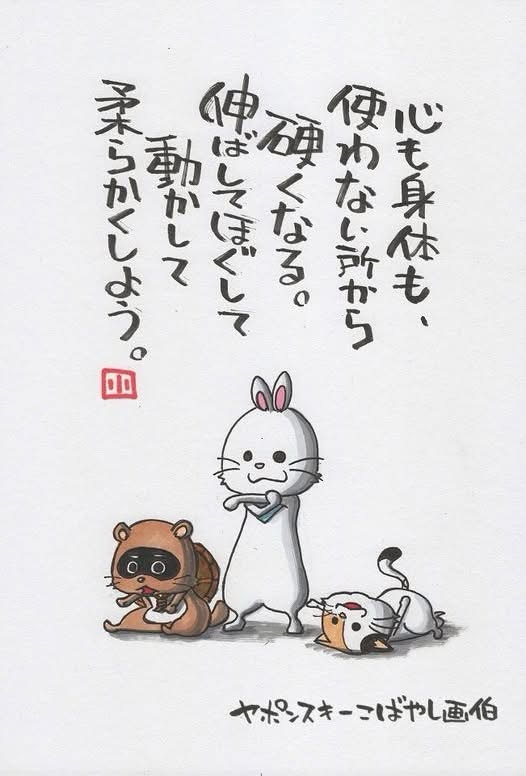 心も身体も、
使わない所から
硬くなる。
伸ばしてほぐして
動かして
柔らかくしよう。
小
ヤポンスキーこばやし画伯